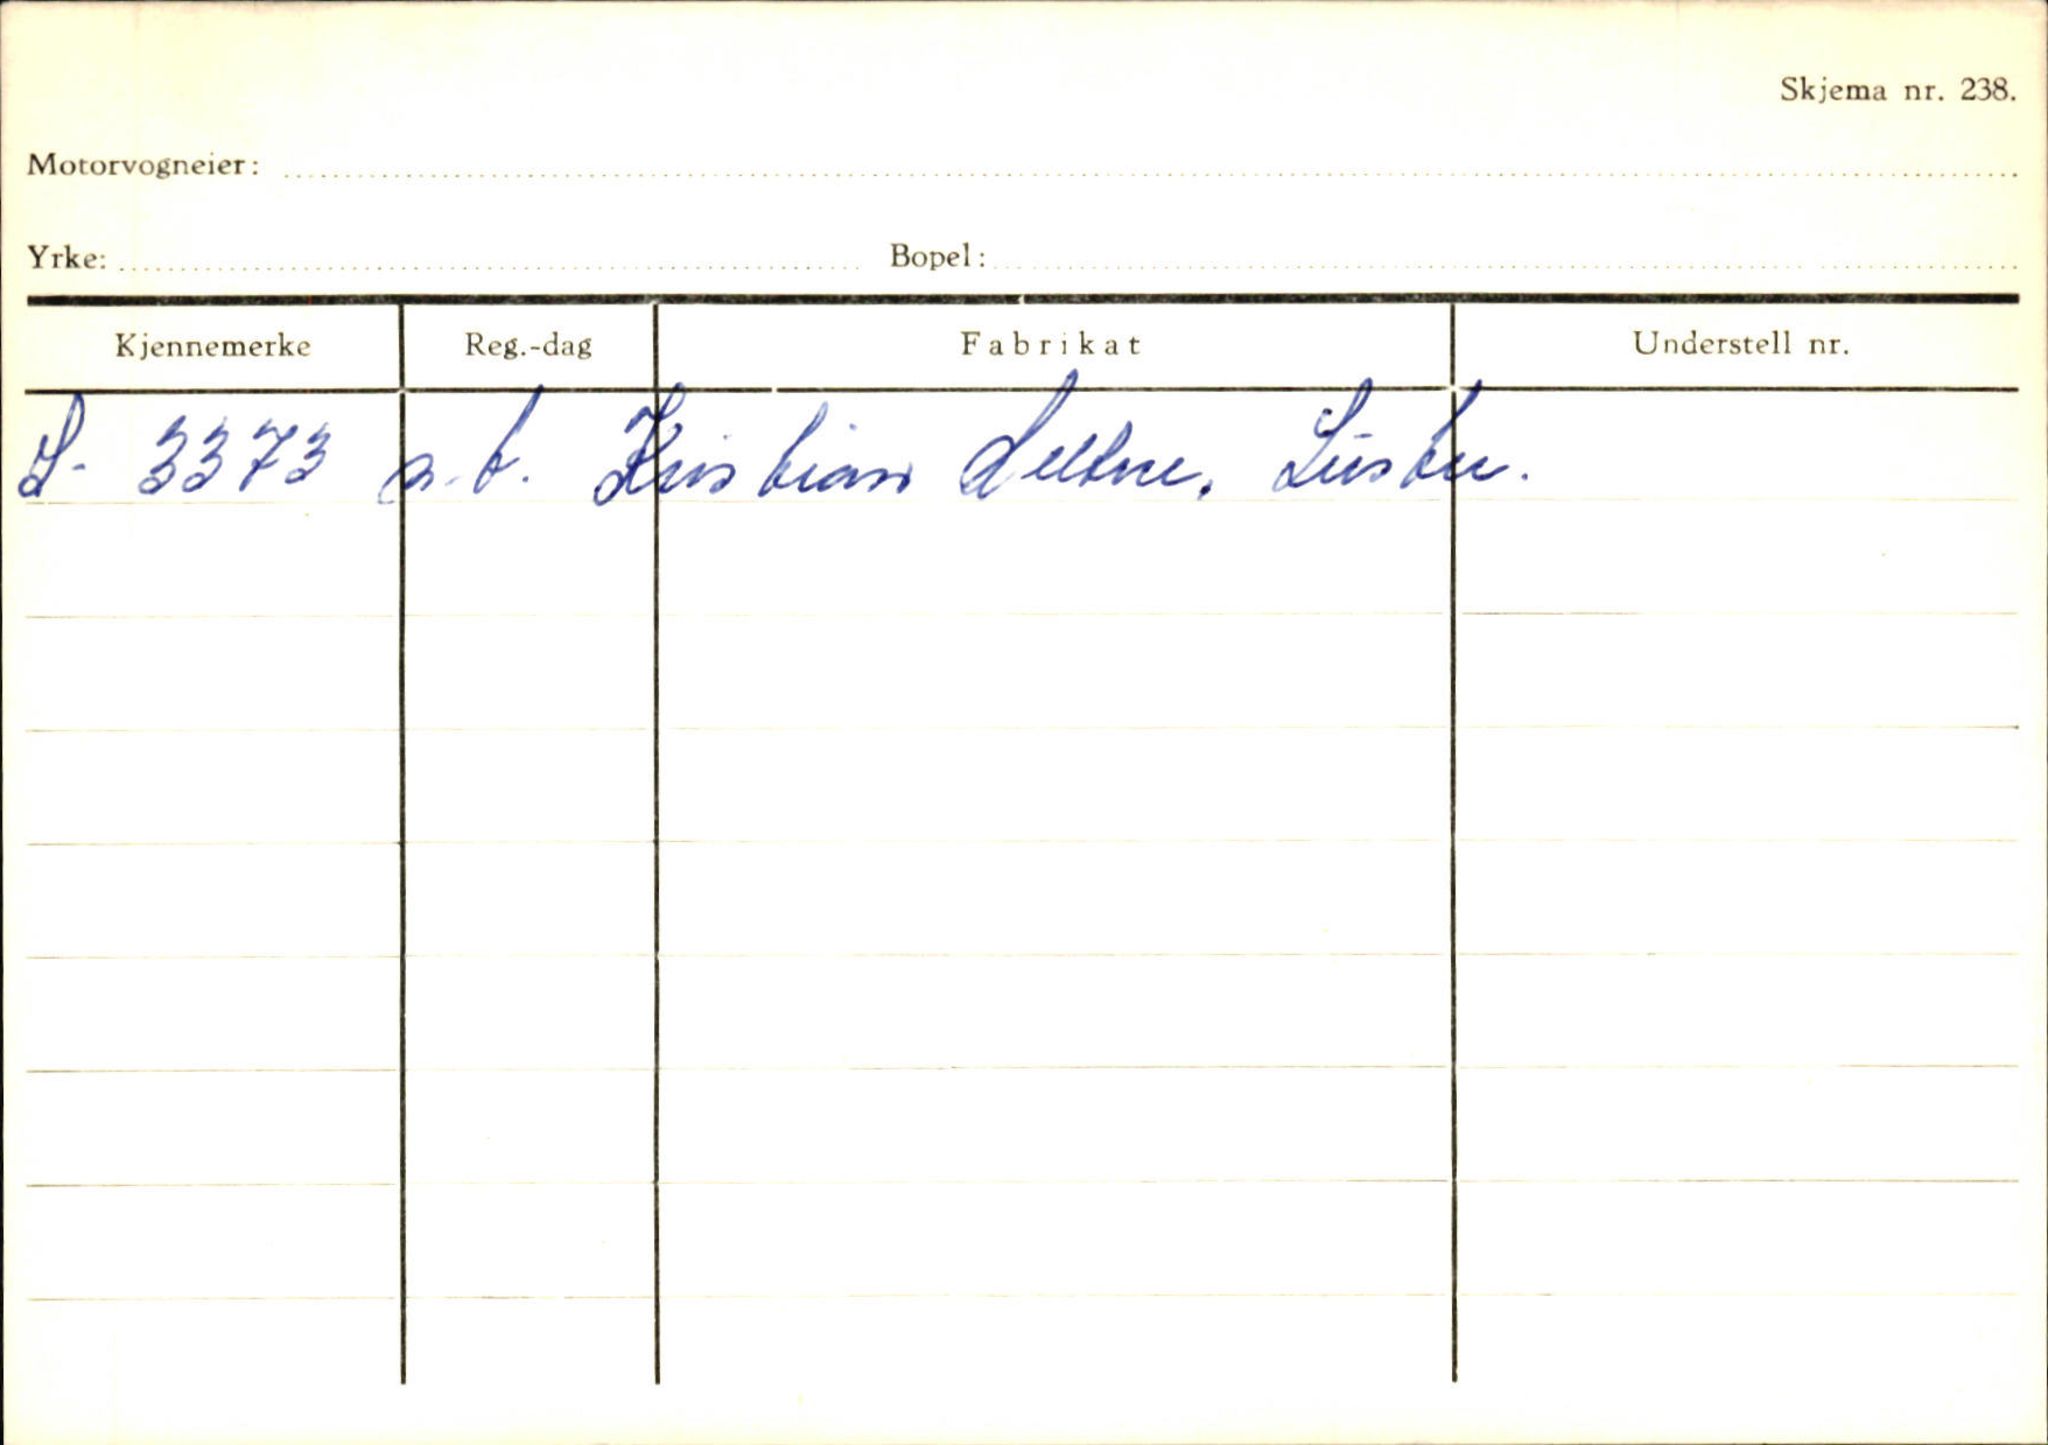 Skjema nr. 238.
Motorvogneier:
Yrke: Bopel:
Kjennemerke Reg.-dag Fabrikat Understell nr.
S- 3373 a.t. Kristian Luster.